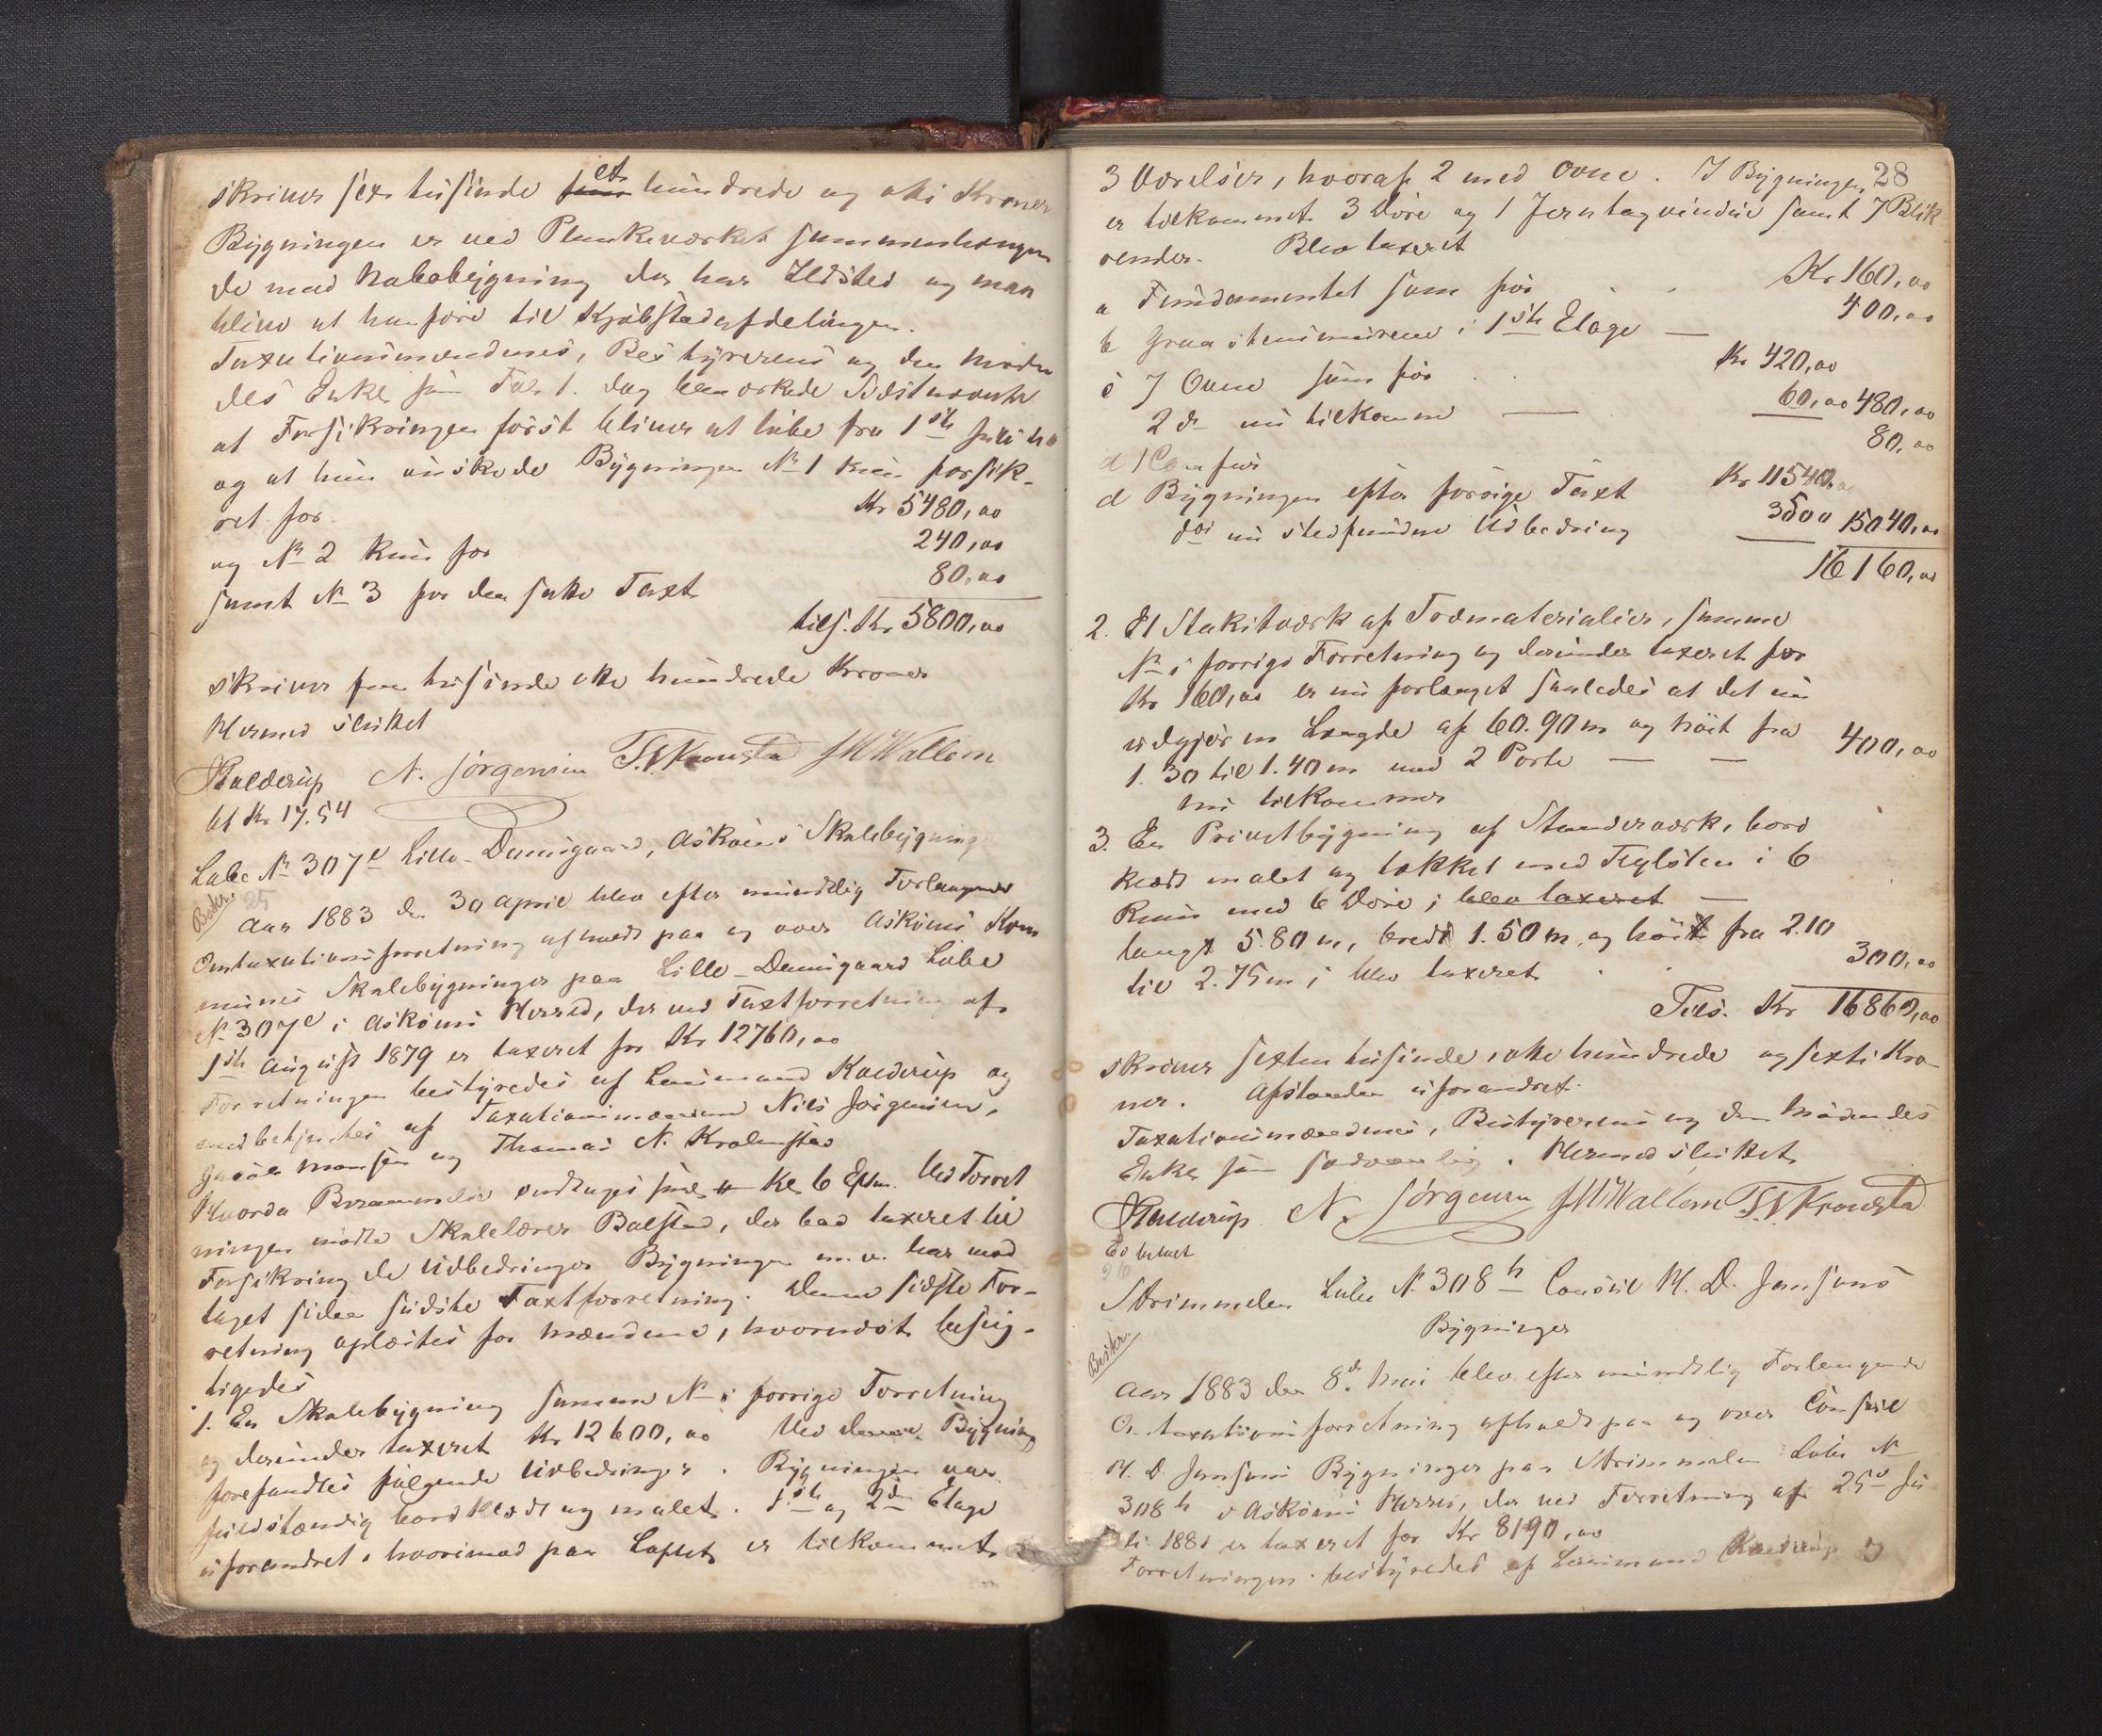 skriver sex tusinde et hundrede og otti Kroner
Bygningen er ved Plankeværket sammenhængen
de med Nabobygning der har Ildsted og maa
blive at henføre til Kjøbstadafdelingen.
Taxationsmændenes, Bestyrerens og den møden
des Enke som Før 1. dag bemærkede Sidstnævnte
at Forsikringen först bliver at löbe fra 1ste Juli
og at hun önskede Bygningen No 1 kun forsik-
ret for Kr 5480,00
og No 2 kun for 240,00
samt No 3 for den fulle Taxt 80,00
tils. Kr 5800,00
skriver fem tusinde otte hundrede Kroner
Hermed sluttet
Kalderup N. Jörgensen T. N. Kronsta JMWallem
bt Kr 17.54
Labe No 307e Lille-Damsgaard, Askøens Skolebygning
Beskr. 25
Aar 1883 den 30 April blev efter mundtlig Forlangende
Omtaxationsforretning afholdt paa og over Askøens Kom
munes Skolebygninger paa Lille-Damsgaard Labe
No 307e i Askøens Herred, der ved Taxtforretning af
1ste August 1879 er taxeret for Kr 12760,00
Forretningen bestyredes af Lensmand Kalderup og
medbetjentes af Taxationsmændene Nils Jörgensen,
Monsen og Thomas N. Kronstad
Hvorda Berammelse Kl. 6 Eftm. Ved Forret
ningen mødte Skolelærer Balstad, der bad taxeret til
Forsikring de Udbedringer Bygningen m.v. har mod
taget siden sidste Taxtforretning. Denne sidste For-
retning oplæstes for Mændene, hvornæst besig-
tigedes
1. En Skolebygning samme No i forrige Forretning
og derunder taxeret Kr 12600,00 Ved denne Bygning
forefandtes følgende Udbedringer. Bygningen var
fuldstændig bordklædt og malet. 1ste og 2den Etage
uforandret, hvorimod paa Loftet er tilkommet
28
3 Værelser, hvoraf 2 med Ovne. I Bygningen
er tilkommet 3 Döre og 1 Jerntagvindue samt 7 Blik
render. Blev taxeret
a Fundamentet som för Kr 160,00
b Graastensmurene i 1ste Etage — 400,00
c 7 Ovne som för Kr 420,00
2 do nu tilkomne — 60,00 480,00
d 1 Comfur 80,00
d Bygningen efter forrige Taxt Kr 11540,00
for nu stedfundne Udbedring 3500 15040,00
16160,00
2. Et Stakitværk af Træmaterialier, samme
No i forrige Forretning og derunder taxeret for
Kr 160,00 er nu forlænget saaledes at det nu
udgjör en Længde af 60.90 m og höit fra
1.30 til 1.40 m med 2 Porte — — 400,00
nu tilkommer
3. En Privetbygning af Standerværk, bord
klædt malet og tækket med Teglsten i 6
Rum med 6 Döre; blev taxeret —
langt 5.80 m, bredt 1.50 m og höit fra 2.10
til 2.75 m; blev taxeret 300,00
Tils. Kr 16860,00
skriver sexten tusinde, otte hundrede og sexti Kro-
ner. Afstanden uforandret.
Taxationsmændenes, Bestyrerens og den mödendes
Enke som sædvanlig. Hermed sluttet
Kalderup N. Jörgensen JMWallem T. N. Kronsta
Er betalt
26
Strimmelen Labe No 308h Consul H. D. Jansons
Bygninger
Beskr.
Aar 1883 den 8de Mai blev efter mundtlig Forlangende
Omtaxationsforretning afholdt paa og over Consul
H. D. Jansons Bygninger paa Strimmelen Labe No
308h i Askøens Herred, der ved Forretning af 25de Ju
li 1881 er taxeret for Kr 8190,00
Forretningen bestyredes af Lensmand Kalderup og